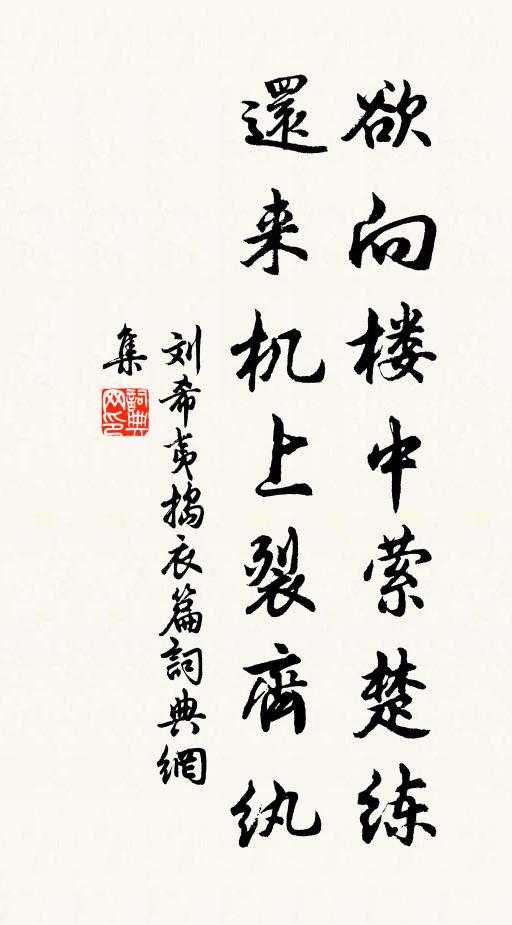 欲向楼中萦楚练
還来机上裂齊纨
刘希夷捣衣篇詞典網
集
詞典网印